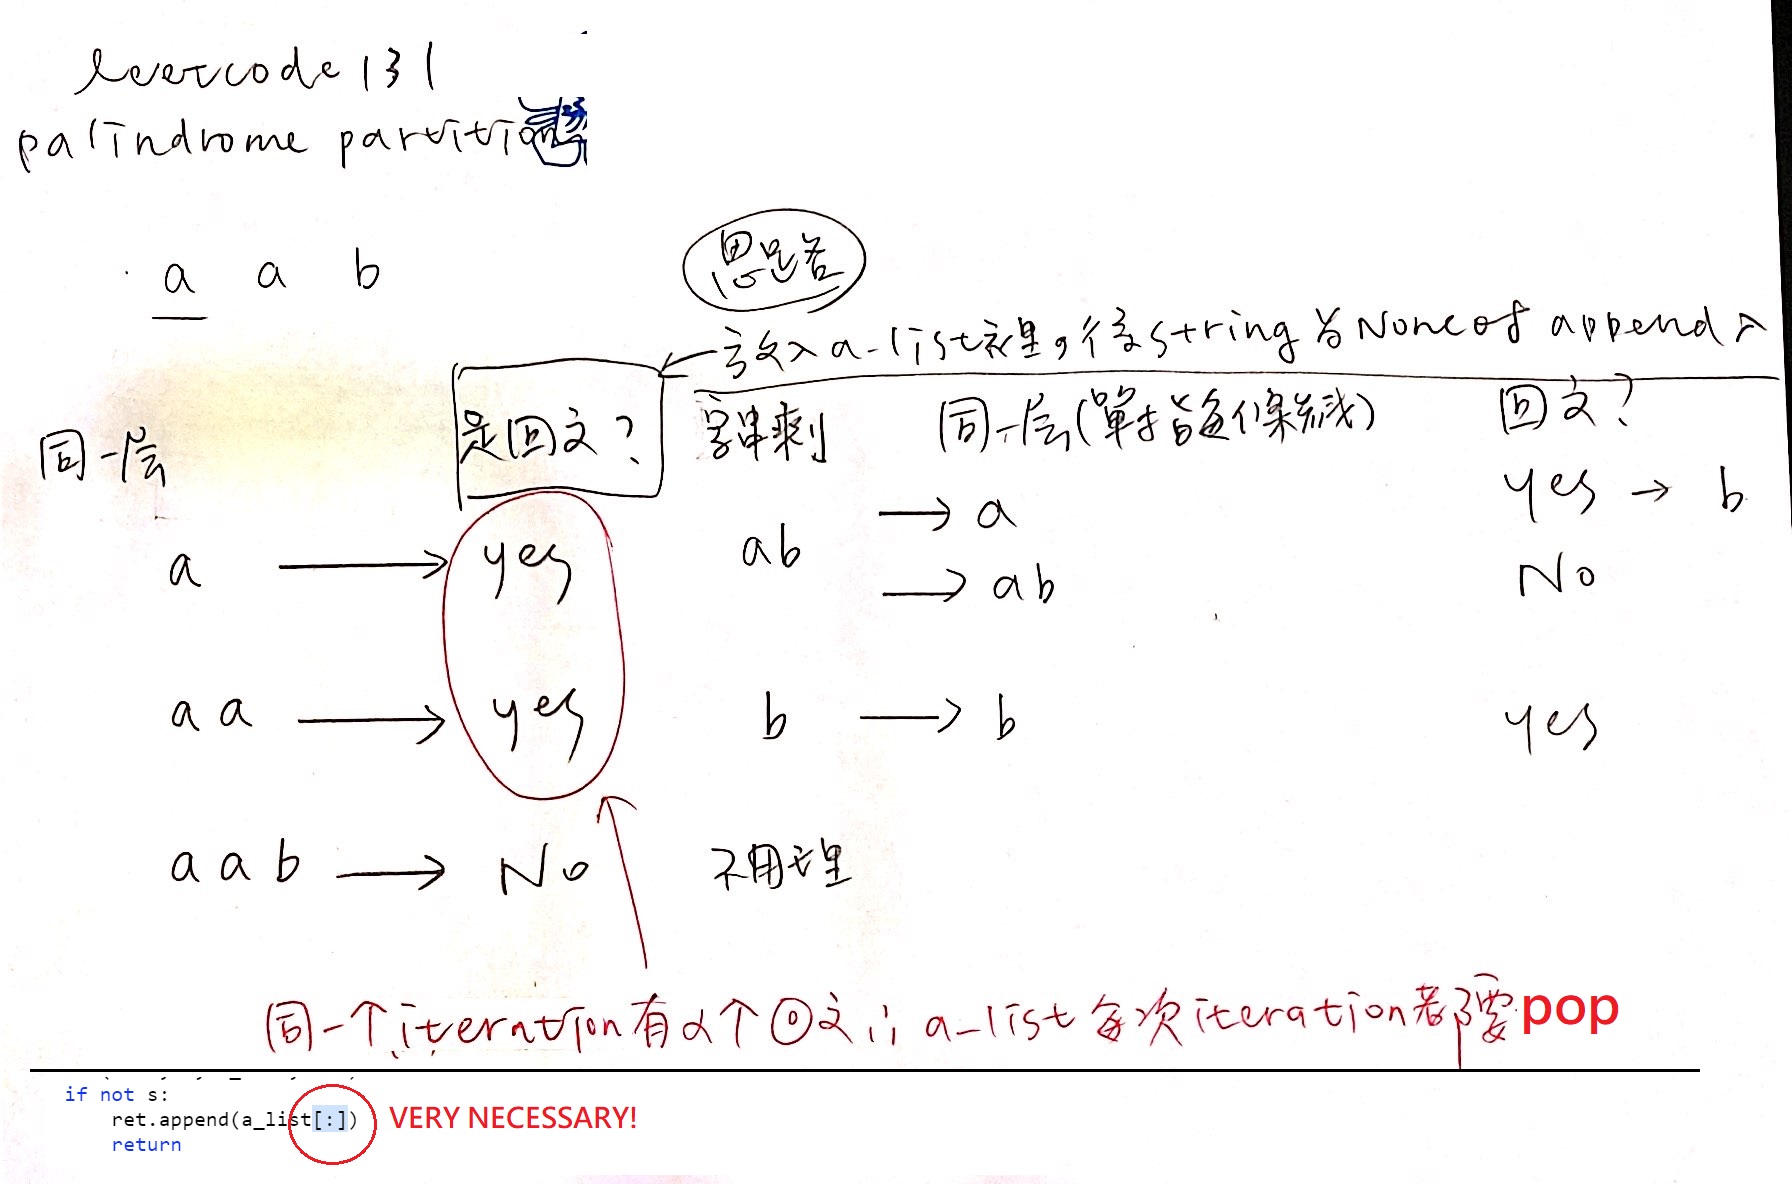 leetcode 131
palindrome partition
a a b
思是否
放入a-list裡,後string為None of append入
同一层 是回文? 字串剩 同一层(單指每條線) 回文?
a → yes ab → a yes → b
→ ab No
aa → yes b → b yes
aab → No 不用理
同一个iteration有2个回文∴ a_list每次iteration都要pop
if not s:
ret.append(a_list[:]) VERY NECESSARY!
return